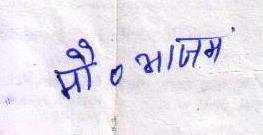 मौ० आजम